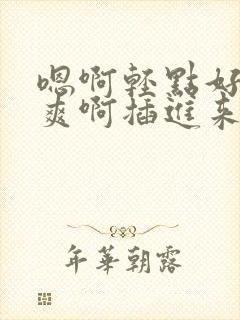 嗯啊轻點好
爽啊插進来
年華朝露